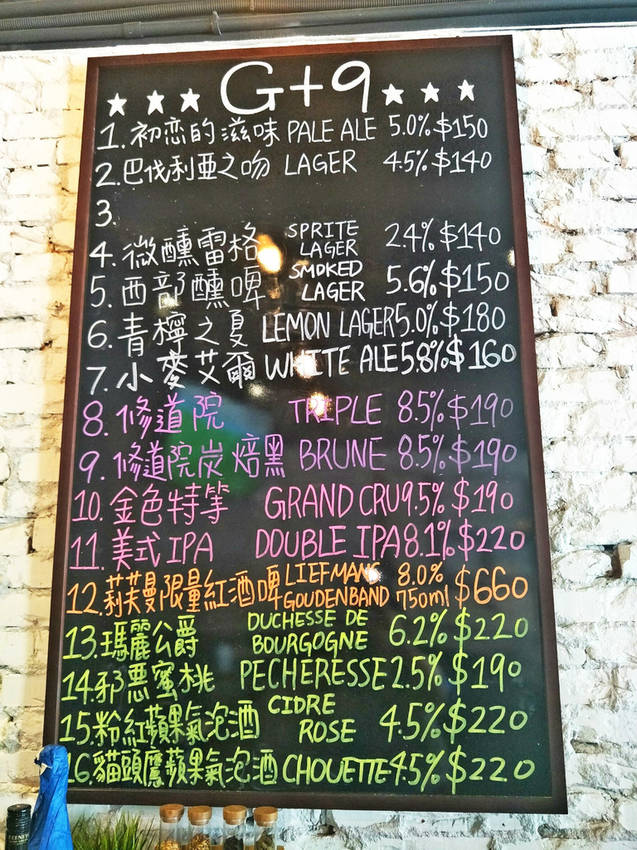 G+9
1. 初恋的滋味 PALE ALE 5.0% $150
2. 巴伐利亞之吻 LAGER 4.5% $140
3.
4. 微醺雷格 SPRITE LAGER 2.4% $140
5. 西部醺啤 SMOKED LAGER 5.6% $150
6. 青檸之夏 LEMON LAGER 5.0% $180
7. 小麥艾爾 WHITE ALE 5.8% $160
8. 修道院 TRIPLE 8.5% $190
9. 修道院炭焙黑 BRUNE 8.5% $190
10. 金色特等 GRAND CRU 9.5% $190
11. 美式IPA DOUBLE IPA 8.1% $220
12. 莉芙曼限量紅酒啤 LIEFMANS GOUDENBAND 8.0% 750ml $660
13. 瑪麗公爵 DUCHESSE DE BOURGOGNE 6.2% $220
14. 邪惡蜜桃 PECHERESSE 2.5% $190
15. 粉紅蘋果氣泡酒 CIDRE ROSE 4.5% $220
16. 貓頭鷹蘋果氣泡酒 CHOUETTE 4.5% $220